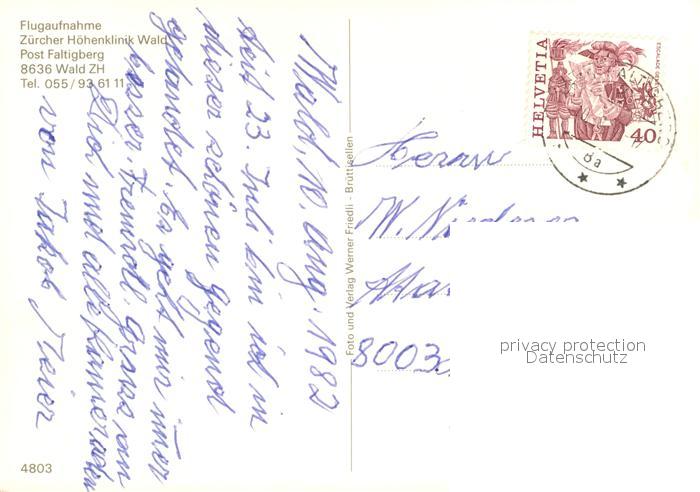 Flugaufnahme
Zürcher Höhenklinik Wald
Post Faltigberg
8636 Wald ZH
Tel. 055 / 93 61 11
Wald, 10. Aug. 1982
Seit 23. Juli bin ich in
dieser schönen Gegend
gelandet. Es geht mir imer
besser. Freundl. Grüsse an
Dich und alle Kameraden
von Jakob Meier
4803
Foto und Verlag Werner Friedli - Brüttisellen
HELVETIA
40
8a
Herrn
W.
8003
privacy protection
Datenschutz